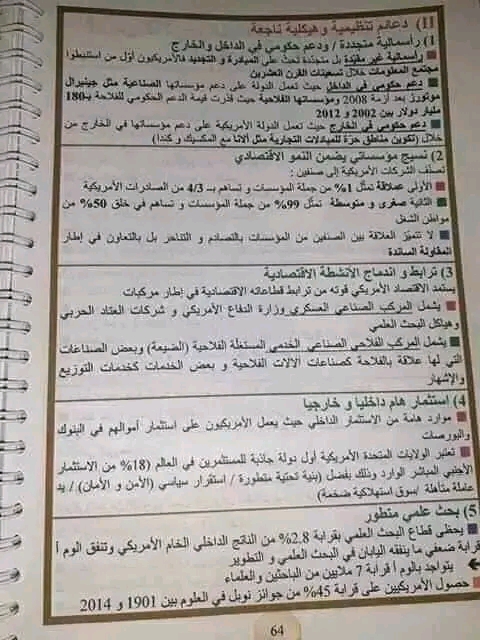 II) دعائم تنظيمية وهيكلية ناجعة
1) رأسمالية متجددة / ودعم حكومي في الداخل والخارج
رأسمالية غير مقيدة بل متجددة تحث على المبادرة و التجديد فالأمريكيون أول من استنبطوا
مجتمع المعلومات خلال تسعينات القرن العشرين
دعم حكومي في الداخل حيث تعمل الدولة على دعم مؤسساتها الصناعية مثل جينيرال
موتورز بعد أزمة 2008 ومؤسساتها الفلاحية حيث قدرت قيمة الدعم الحكومي للفلاحة بـ180
مليار دولار بين 2002 و 2012
دعم حكومي في الخارج حيث تعمل الدولة الأمريكية على دعم مؤسساتها في الخارج من
خلال (تكوين مناطق حرّة للمبادلات التجارية مثل ألانا مع المكسيك و كندا)
2) نسيج مؤسساتي يضمن النمو الاقتصادي
تصنّف الشركات الأمريكية إلى صنفين :
الأولى عملاقة تمثّل 1% من جملة المؤسسات و تساهم بـ 4/3 من الصادرات الأمريكية
الثانية صغرى و متوسطة تمثّل 99% من جملة المؤسسات و تساهم في خلق 50% من
مواطن الشغل
لا تتميّز العلاقة بين الصنفين من المؤسسات بالتصادم و التناحر بل بالتعاون في إطار
المقاولة الساندة
3) ترابط و اندماج الأنشطة الاقتصادية
يستمد الاقتصاد الأمريكي قوته من ترابط قطاعاته الاقتصادية في إطار مركبات
يشمل المركب الصناعي العسكري وزارة الدفاع الأمريكي و شركات العتاد الحربي
وهياكل البحث العلمي
يشمل المركب الفلاحي الصناعي الخدمي المستغلة الفلاحية (الضيعة) وبعض الصناعات
التي لها علاقة بالفلاحة كصناعات ألآلات الفلاحية و بعض الخدمات كخدمات التوزيع
والإشهار
4) استثمار هام داخليا و خارجيا
موارد هامة من الاستثمار الداخلي حيث يعمل الأمريكيون على استثمار أموالهم في البنوك
والبورصات
تعتبر الولايات المتحدة الأمريكية أول دولة جاذبة للمستثمرين في العالم (18% من الاستثمار
الأجنبي المباشر الوارد وذلك بفضل (بنية تحتية متطورة / استقرار سياسي (الأمن و الأمان)/ يد
عاملة متأهلة /سوق استهلاكية ضخمة)
5) بحث علمي متطور
يحظى قطاع البحث العلمي بقرابة 2.8% من الناتج الداخلي الخام الأمريكي وتنفق الوم أ
قرابة ضعفي ما ينفقه اليابان في البحث العلمي و التطوير
يتواجد بالوم أ قرابة 7 ملايين من الباحثين والعلماء
حصول الأمريكيين على قرابة 45% من جوائز نوبل في العلوم بين 1901 و 2014
64